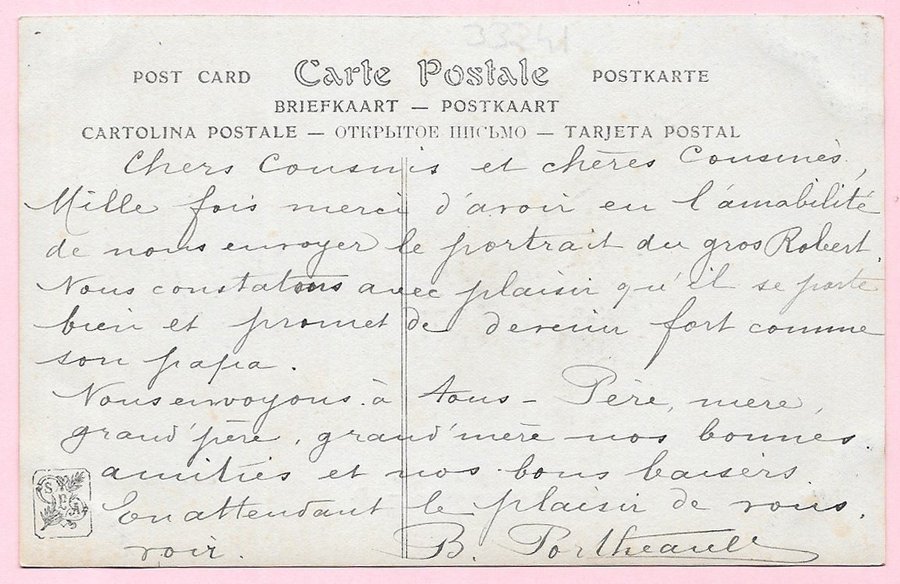 33241
POST CARD Carte Postale POSTKARTE
BRIEFKAART — POSTKAART
CARTOLINA POSTALE — ОТКРЫТОЕ ПИСЬМО — TARJETA POSTAL
Chers Cousins et chères Cousines,
Mille fois merci d'avoir eu l'amabilité
de nous envoyer le portrait du gros Robert.
Nous constatons avec plaisir qu'il se porte
bien et promet de devenir fort comme
son papa.
Nous envoyons à tous – Père, mère,
grand'père, grand'mère nos bonnes
amitiés et nos bons baisers
En attendant le plaisir de vous
voir. B. Portheault